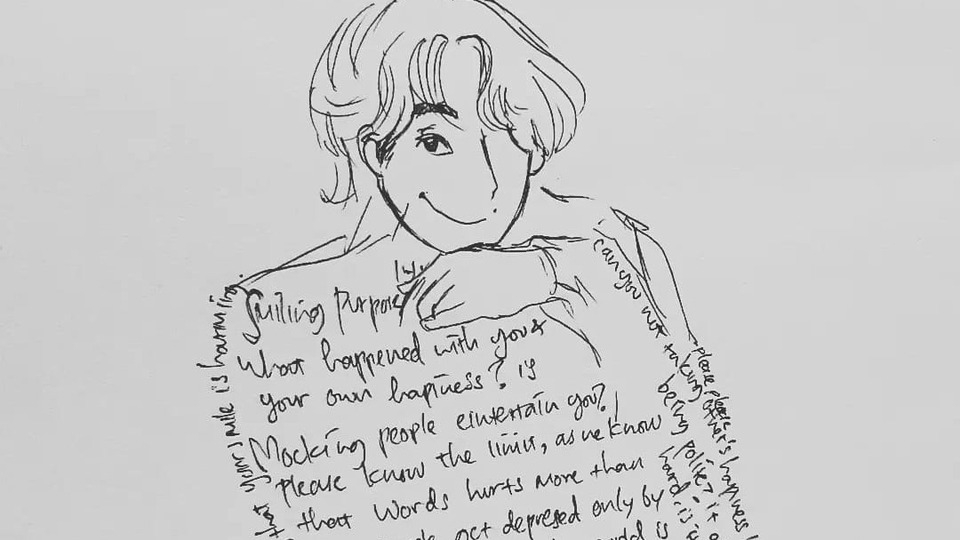 Smiling Purpose
What happened with you &
your own hapiness? is
Mocking people eintertain you?
please know the limit, as we know
that words hurts more than
get depresed only by
is
that your smile is harming.
can you not taking other's happiness
being polite? it
hard. is
please please